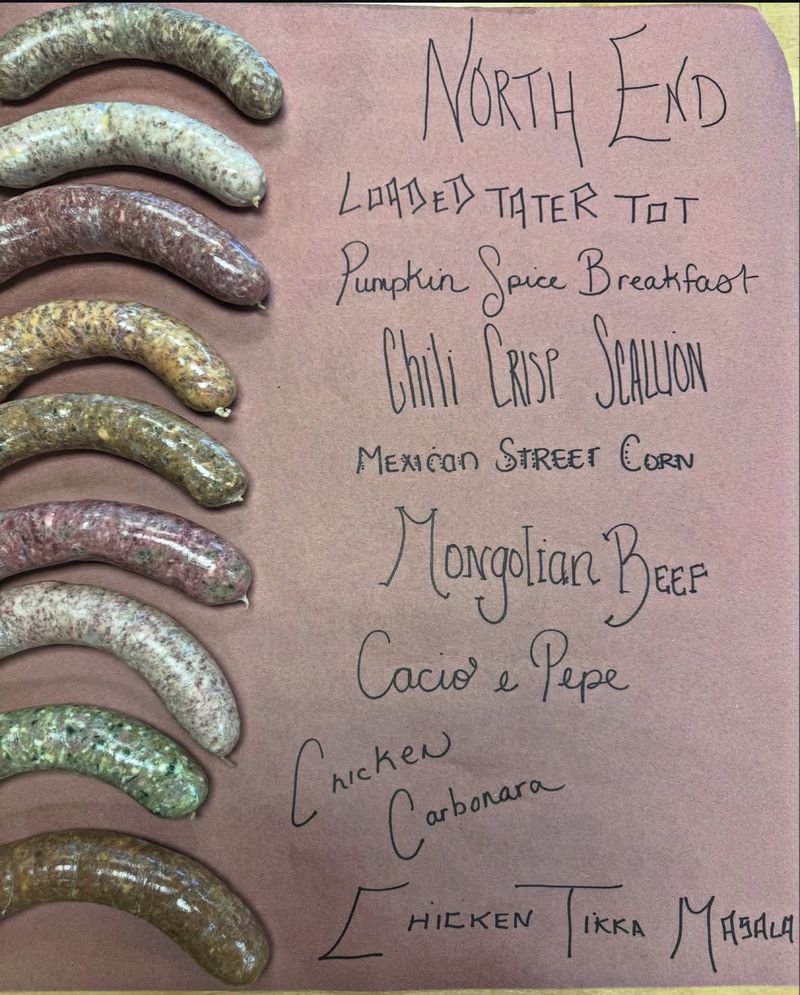 NORTH END
LOADED TATER TOT
Pumpkin Spice Breakfast
Chili CRISP SCALLION
MEXiCan STREET CORN
Mongolian BEEF
Cacio e Pepe
Chicken
Carbonara
CHICKEN TIKKA MASALA